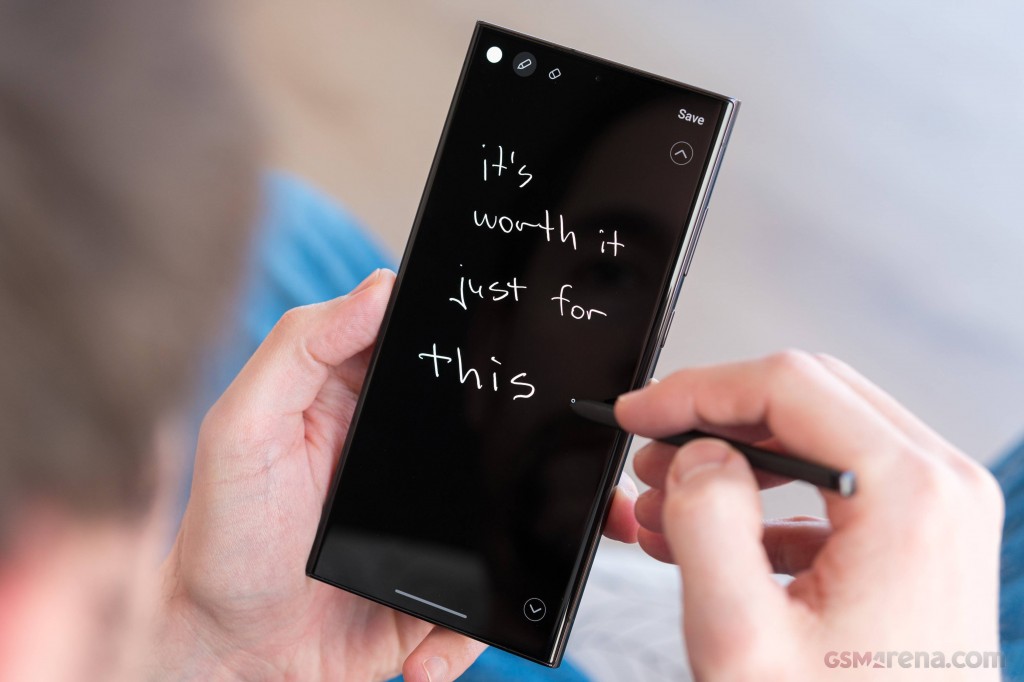 Save
it's
worth it
just for
this
GSMarena.com